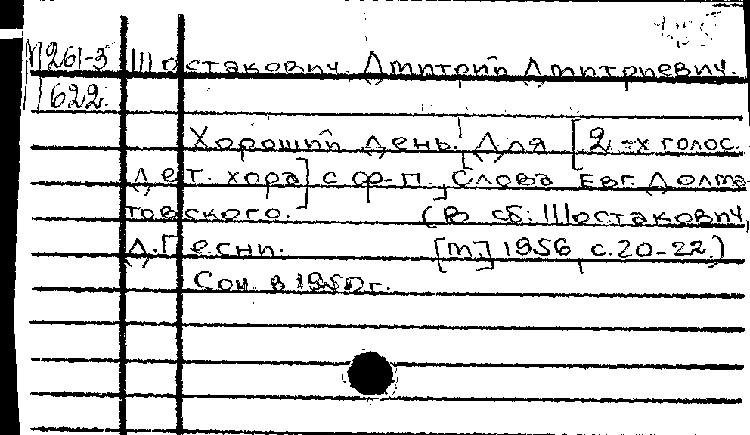 М 261-3 Шостакович, Дмитрий Дмитриевич.
622.
Хороший день. Для [2-х голос.
дет. хора] с ф-п., Слова Евг. Долма-
товского. (В сб: Шостакович,
Д. Песни. [М.] 1956, с. 20-22.)
Соч. в 1950г.